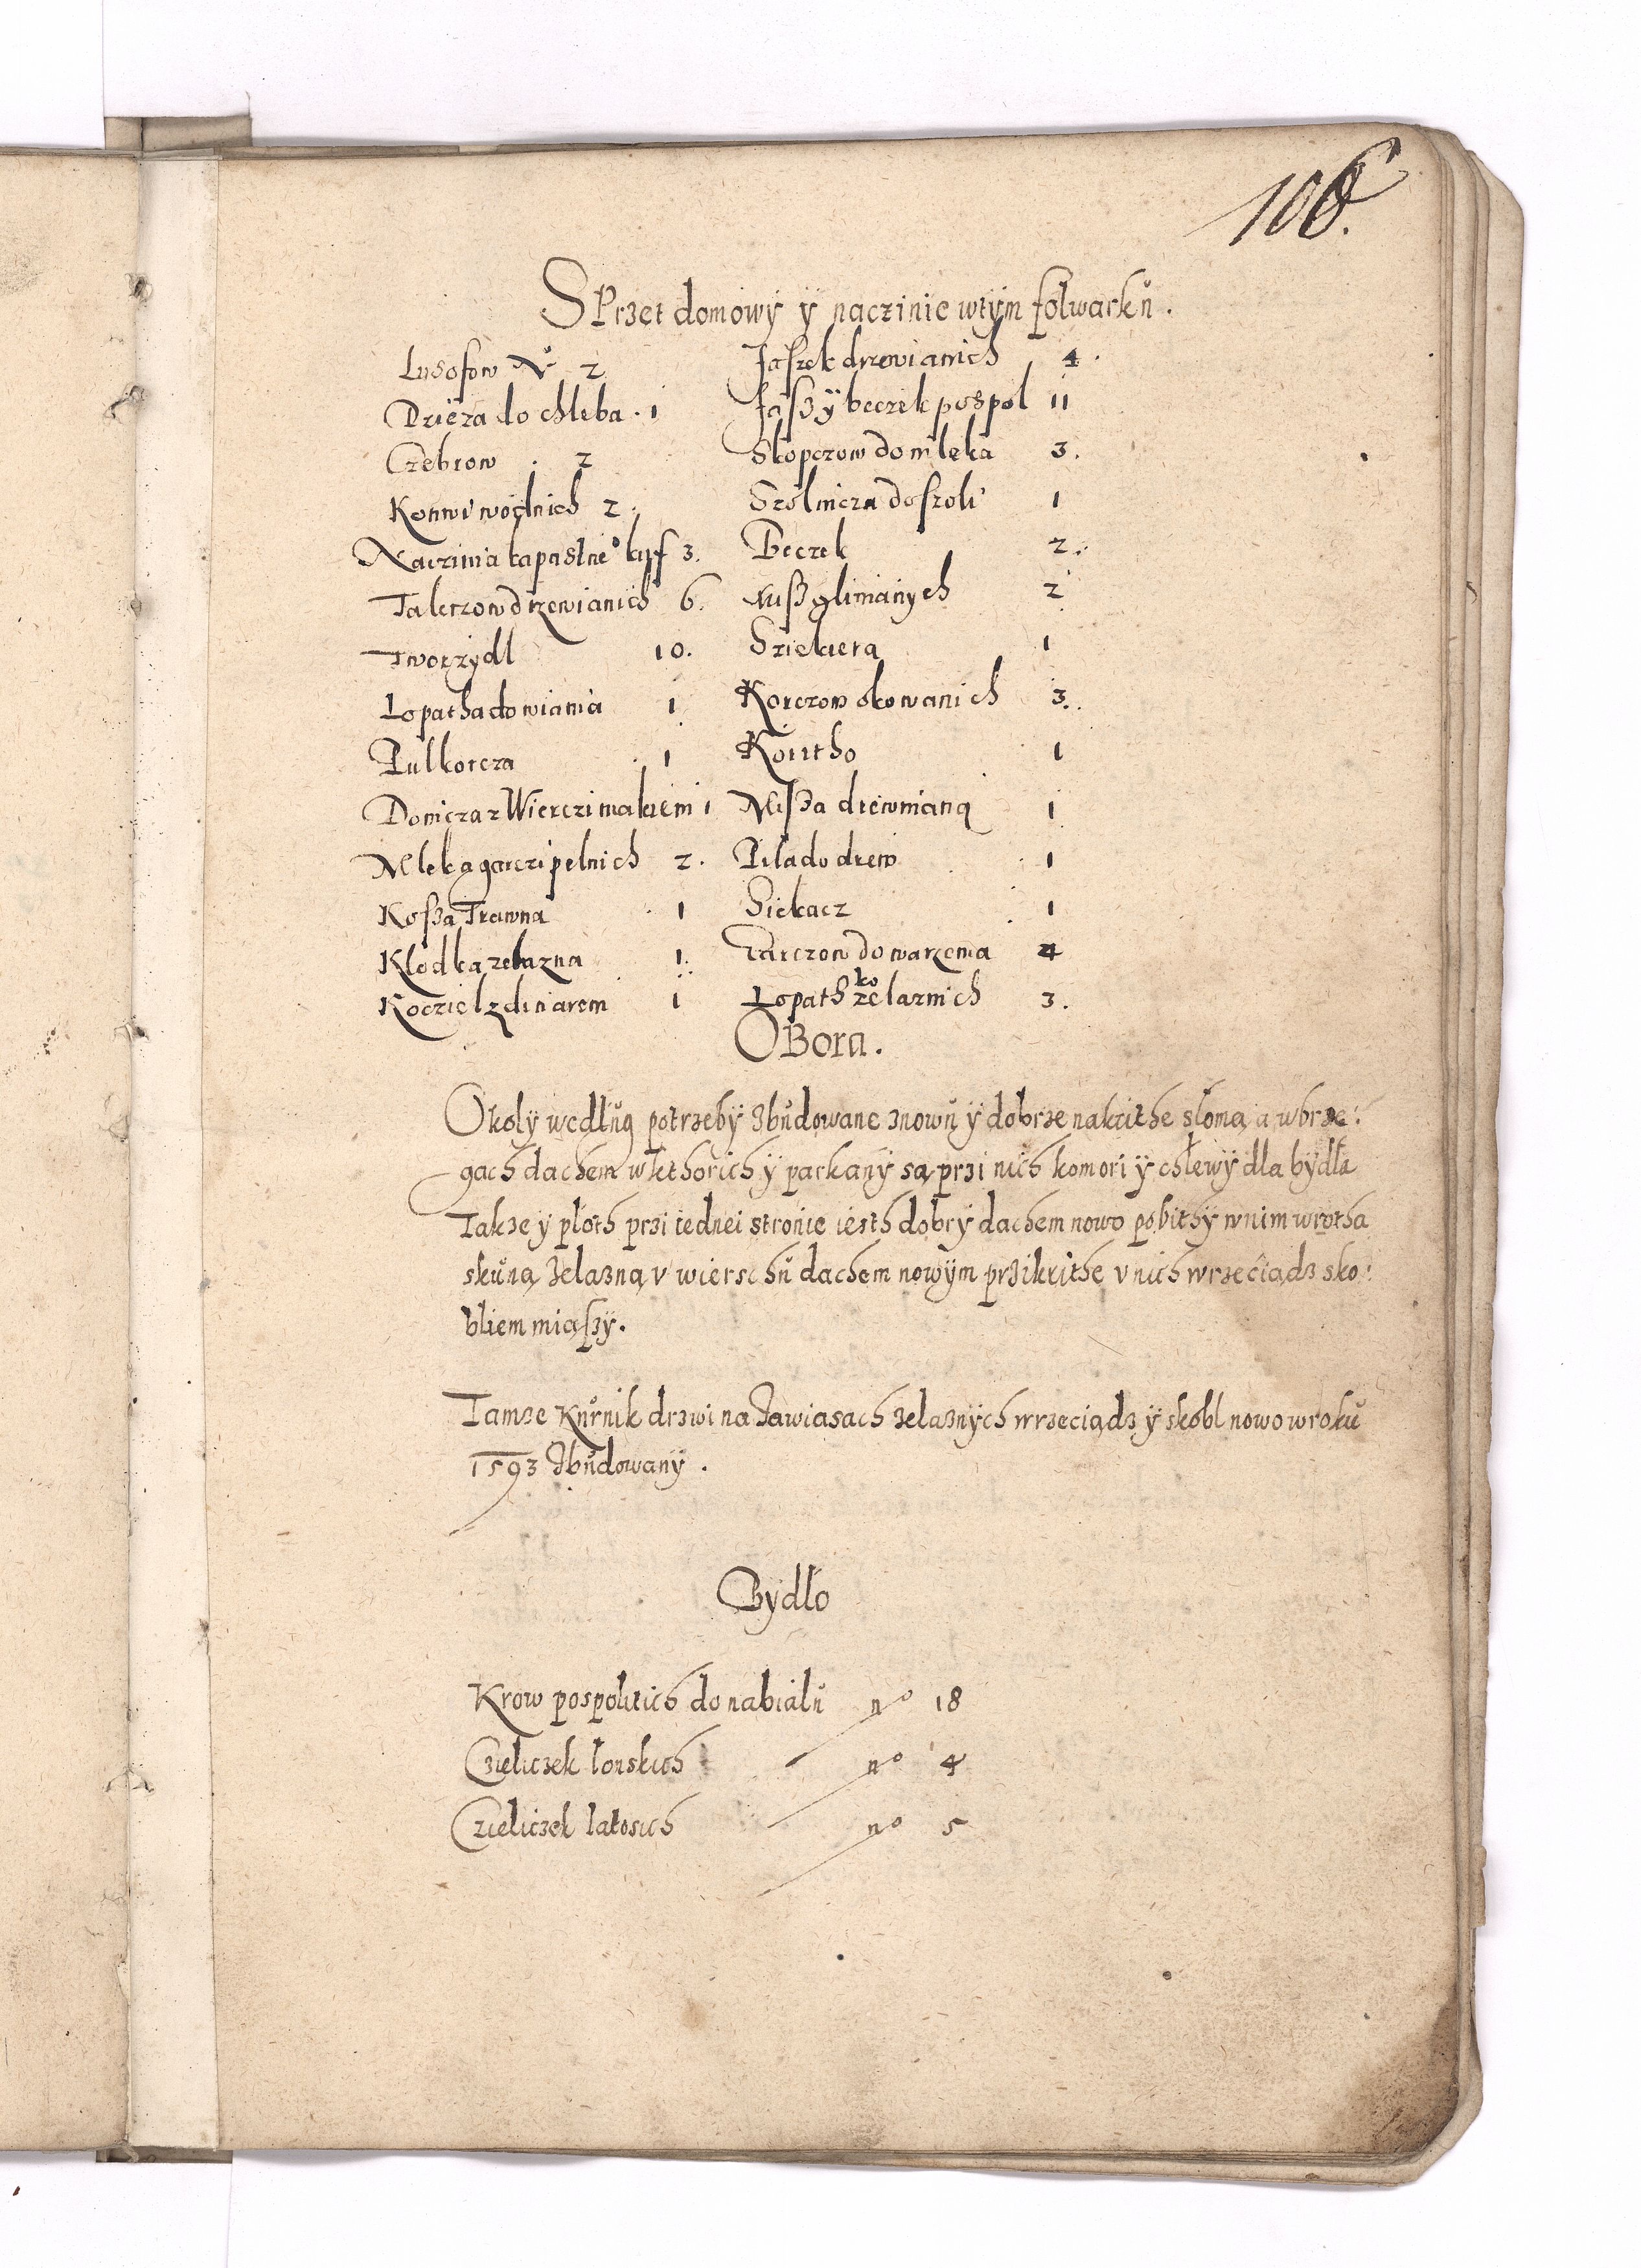 106.
SPrzet domowÿ ÿ naczinie wtÿm folwarkŭ.
Lusofow N° 2
Dzieza do chleba . 1
Czebrow . 2
Konwi wodnich 2.
Naczinia kapustne° kuf 3.
Talerzow drzewianich 6.
Tworzydl 10.
Łopatha do wiania 1
Pulkorcza . 1
Donicza z Wierczimakiem 1
Mleka garczi pelnich 2.
Kossa Trawna . 1
Klodka zelazna 1.
Koczielz dinarem 1
Fassek drzewianich 4.
Fass ÿ beczek pospol 11
Skopczow do mleka 3.
Szolnicza do szoli 1
Beczek 2.
Mis glinianych 2
Sziekiera 1
Korczow okowanich 3.
Koritho 1
Missa drewniana 1
Pila do drew . 1
Siekacz . 1
Garczow do warzenia 4
Łopath zelaznich ko 3.
OBora.
Okolÿ wedlŭg potrzebÿ zbŭdowane znowŭ ÿ dobrze nakrithe słomą, a wbrze:
gach dachem wkthorich ÿ parkanÿ są, przi nich komori ÿ chlewÿ dla bÿdła
Takze ÿ płoth przi iednei stronie iesth dobrÿ dachem nowo pobithÿ wnim wrotha
skŭną zelazną v wierschŭ dachem nowÿm przikrithe v nich wrzeciądz sko:
bliem miąszÿ.
Tamze Kŭrnik drzwi na Zawiasach zelaznÿch wrzeciądz ÿ skobl nowo wrokŭ
1593 Zbŭdowanÿ .
Bÿdło
Krow pospolitich do nabialŭ n° 18
Czieliczek łonskich n° 4
Czieliczek latosich n° 5